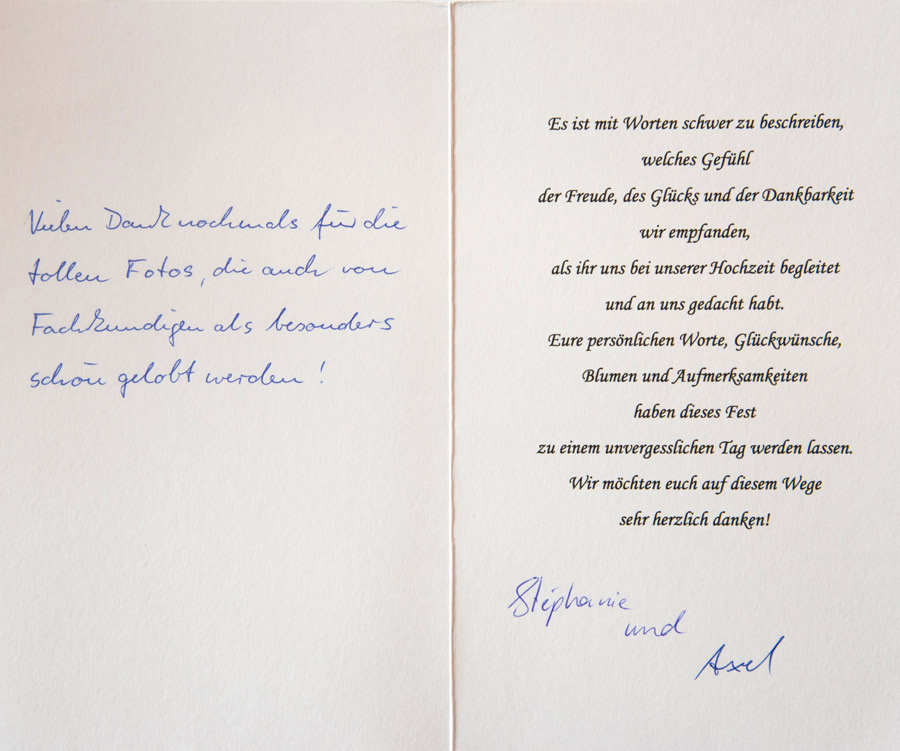 Vielen Dank nochmals für die
tollen Fotos, die auch von
Fachkundigen als besonders
schön gelobt werden!
Es ist mit Worten schwer zu beschreiben,
welches Gefühl
der Freude, des Glücks und der Dankbarkeit
wir empfanden,
als ihr uns bei unserer Hochzeit begleitet
und an uns gedacht habt.
Eure persönlichen Worte, Glückwünsche,
Blumen und Aufmerksamkeiten
haben dieses Fest
zu einem unvergesslichen Tag werden lassen.
Wir möchten euch auf diesem Wege
sehr herzlich danken!
Stéphanie
und
Axel